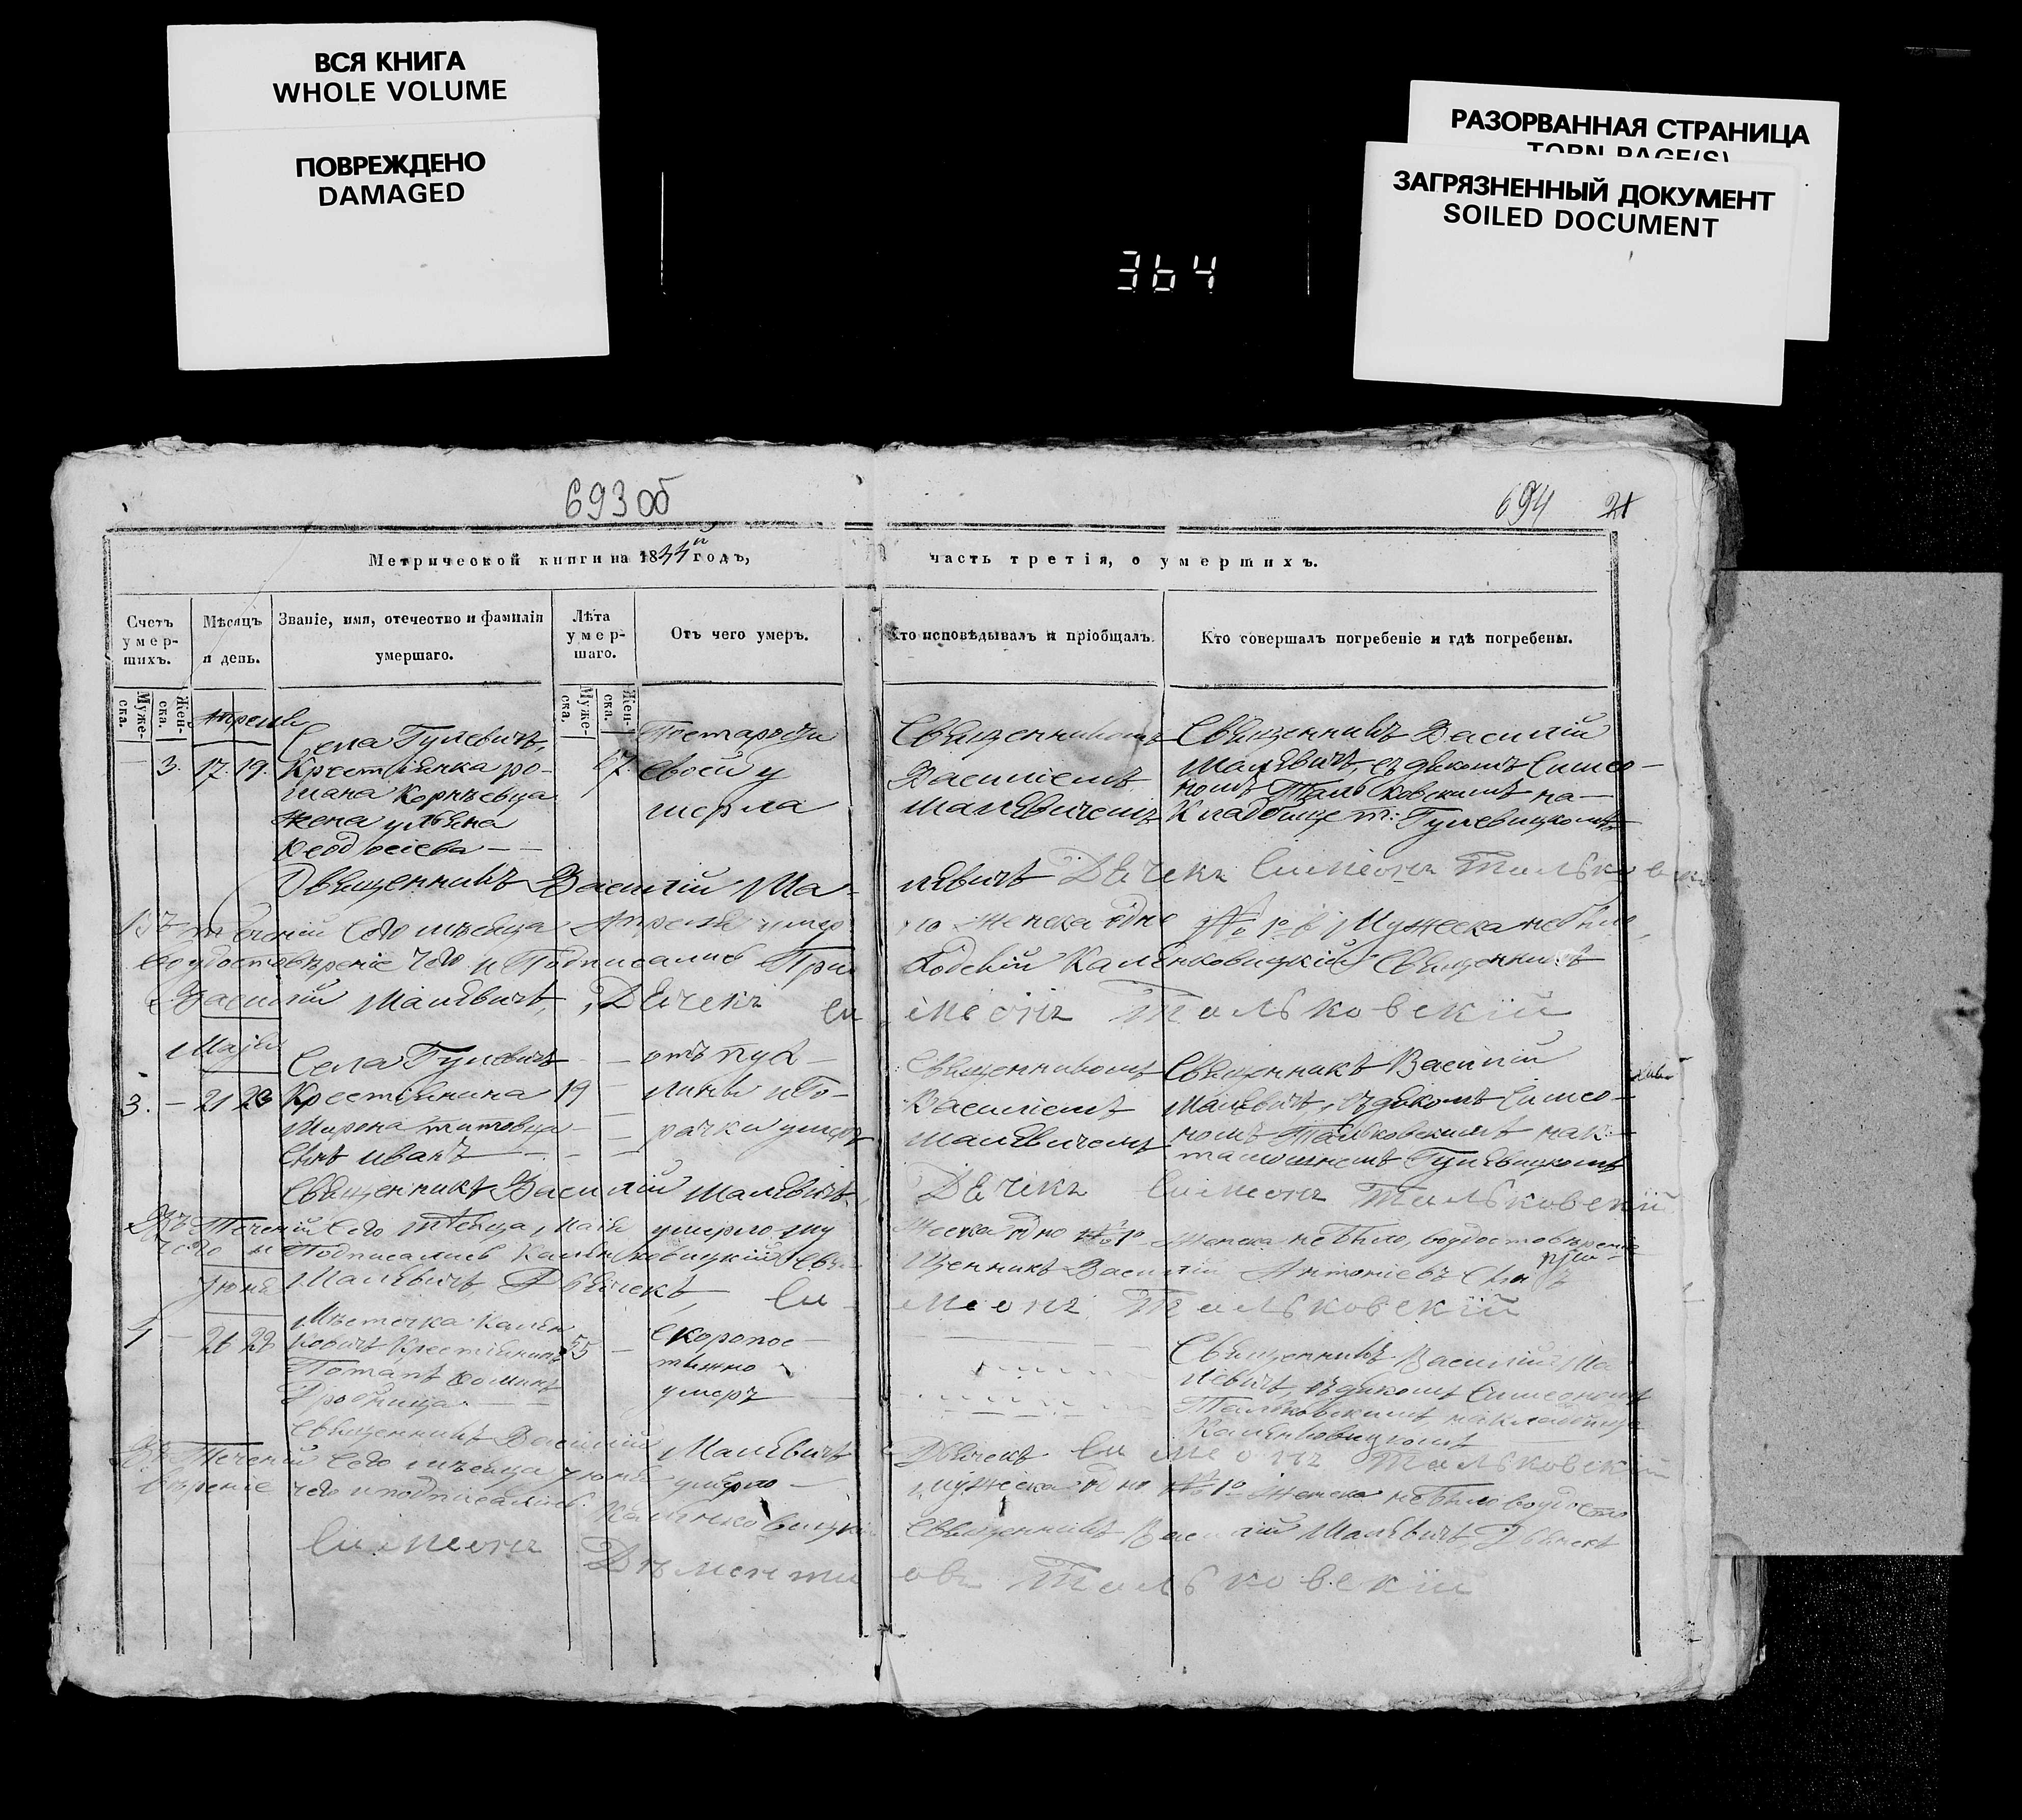 ВСЯ КНИГА
WHOLE VOLUME
ПОВРЕЖДЕНО
DAMAGED
РАЗОРВАННАЯ СТРАНИЦА
TORN PAGE(S)
ЗАГРЯЗНЕННЫЙ ДОКУМЕНТ
SOILED DOCUMENT
364
693 об
694 21
Метрической книги на 1844й годъ,
часть третія, о умершихъ.
Счетъ умер-шихъ.
Мѣсяцъ и день.
Званіе, имя, отечество и фамилія умершаго.
Лѣта умер-шаго.
Отъ чего умеръ.
Кто исповѣдывалъ и пріобщалъ.
Кто совершалъ погребеніе и гдѣ погребены.
Муже-ска.
Жен-ска.
Муже-ска.
Жен-ска.
Апреля
3. 17. 19.
Села Гулевичъ,
Крестьянка ро-
мана Корнѣевца
жена ульяна
По старости
своей у
мерла
Священникомъ
Василіемъ
Малевичемъ
Священникъ Василій
Малевичъ, съ дьякомъ Симео-
номъ Тальковскимъ на
Кладбище Гулевицкомъ
Священникъ Василій Ма-
левичъ Дьячекъ Симеонъ Тальковскій
теченій сего мѣсяца Апреля умер
ло женска одно № 1º Мужеска небыло,
воудостовѣреніе чего и Подписались При
ходскій Каленковицкій Священникъ
Василій Малевичъ, Дьячекъ Си
меонъ Тальковскій
Маія
3. - 21 23
Села Гулевичъ
Крестьянина
Мирона титовца
Сынъ иванъ
19
умеръ
Священникомъ
Василіемъ
Малевичемъ
Священникъ Василій
Малевичъ, съ дьякомъ Симео-
номъ Тальковскимъ
Гулевицкомъ
Священникъ Василій Малевичъ,
Дьячекъ Симеонъ Тальковскій
Въ Теченій Сего мѣсяца Маія умерло му
жеска одно № 1º Женска небыло, воудостовѣреніе
чего и Подписались Каленковицкій Свя
щенникъ Василій Антоніевъ Сынъ
Малевичъ, Дьячекъ, Си
меонъ Тальковскій
Іюня
1 - 26 28
Мѣстечка Кален
ковичъ Крестьянинъ
Потапъ
55
Скоропос
тижно
умеръ
Священникъ Василій Ма
левичъ, съ дьякомъ Симеономъ
Тальковскимъ на кладбище
Каленковицкомъ
Священникъ Василій Малевичъ
Дьячекъ Симеонъ Тальковскій
Въ Теченій Сего мѣсяца Іюня умерло
мужеска одно № 1º Женска небыло воудосто
вѣреніе чего и подписались. Каленковицкій
Священникъ Василій Малевичъ, Дьячекъ
Симеонъ Дъменти
овъ Тальковскій